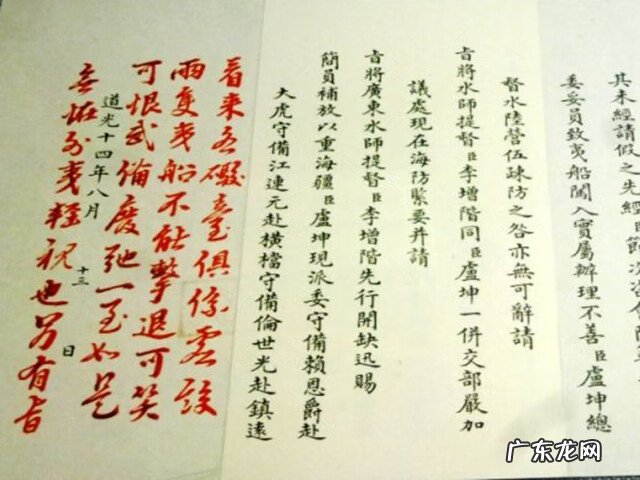 其未經請假之先經臣節次咨會
委妥員致夷船闖入實屬辦理不善臣盧坤總
督水陸營伍疎防之咎亦無可辭請
旨將水師提督臣李增階同臣盧坤一併交部嚴加
議處現在海防緊要并請
旨將廣東水師提督臣李增階先行開缺迅賜
簡員補放以重海疆臣盧坤現派委守備賴恩爵赴
大虎守備江連元赴橫檔守備倫世光赴鎮遠
看來各礮臺俱係虛設
兩隻夷船不能擊退可笑
可恨武備廢弛一至如是
道光十四年八月十三日
無怪外夷輕視也另有旨
广东龙网